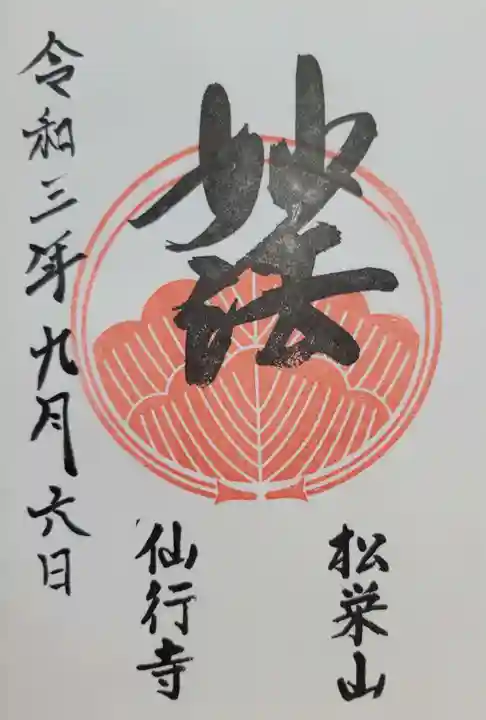 妙法
松栄山
仙行寺
令和三年九月六日